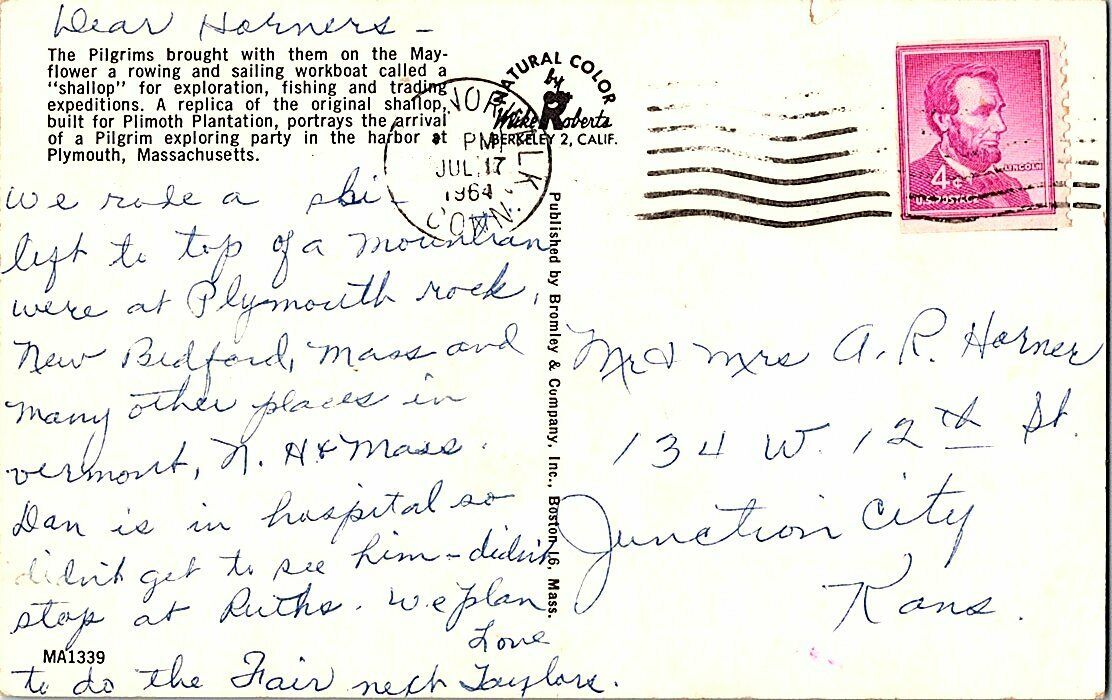 Dear Horners -
The Pilgrims brought with them on the May-
flower a rowing and sailing workboat called a
"shallop" for exploration, fishing and trading
expeditions. A replica of the original shallop,
built for Plimoth Plantation, portrays the arrival
of a Pilgrim exploring party in the harbor at
Plymouth, Massachusetts.
We rode a ski-
lift to top of a mountian
were at Plymouth rock,
New Bedford, Mass and
many other places in
vermont, N. H & Mass.
Dan is in hospital so
didn't get to see him - didn't
stop at Ruths. We plan
to do the Fair next
Love
Taylors.
MA1339
NATURAL COLOR
by
Mike Roberts
BERKELEY 2, CALIF.
NORWALK
PM
JUL 17
1964
CONN.
Published by Bromley & Company, Inc., Boston 16, Mass.
LINCOLN
4¢
U.S. POSTAGE
Mr & Mrs A. R. Horner
134 W. 12th St.
Junction City
Kans.